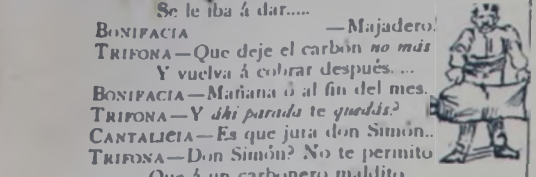 Se le iba á dar.....
BONIFACIA —Majadero!
TRIFONA—Que deje el carbón no más
Y vuelva á cobrar después....
BONIFACIA—Mañana ó al fin del mes.
TRIFONA—Y áhi parada te quedás?
CANTALICIA—Es que jura don Simón..
TRIFONA—Don Simón? No te permito
Que á un carbonero maldito